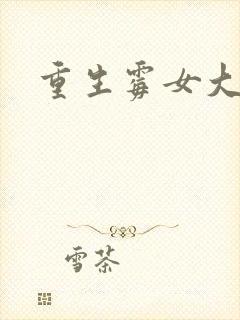 重生霉女大
雪茶